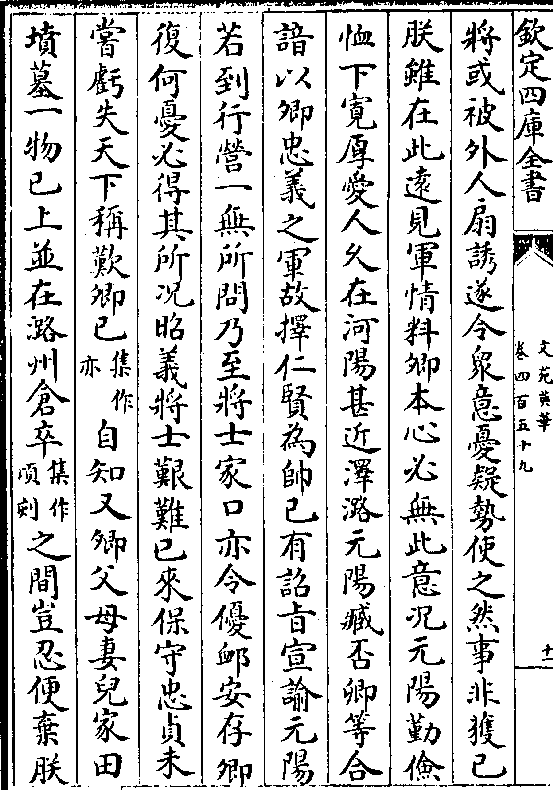 欽定四庫全書
文苑英華
卷四百五十九
十一
將或被外人扇誘遂令衆意憂疑勢使之然事非獲已
朕雖在此遠見軍情料卿本心必無此意况元陽勤儉
恤下寛厚愛人乆在河陽甚近澤潞元陽臧否卿等合
諳以卿忠義之軍故擇仁賢為帥已有詔旨宣諭元陽
若到行營一無所問乃至將士家口亦令優䘏安存卿
復何憂必得其所况昭義將士艱難已來保守忠貞未
嘗虧失天下稱歎卿已集作亦自知又卿父母妻兒家田
墳墓一物已上並在潞州倉卒集作頃刻之間豈忍便棄朕